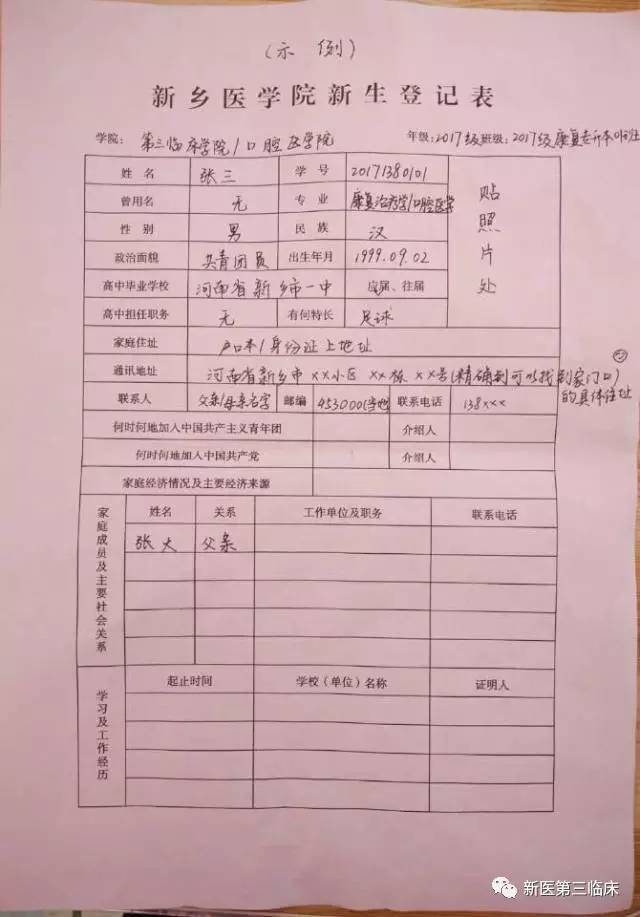 (示例)
新乡医学院新生登记表
学院：第三临床学院/口腔医学院 年级：2017级 班级：2017级康复专升本
姓名 张三 学号 20171380101 贴照片处
曾用名 无 专业 康复治疗学/口腔医学
性别 男 民族 汉
政治面貌 共青团员 出生年月 1999.09.02
高中毕业学校 河南省新乡市一中 应届、往届
高中担任职务 无 有何特长 足球
家庭住址 户口本/身份证上地址
通讯地址 河南省新乡市××小区××栋××号(精确到可以找到家门口)的具体住址
联系人 父亲/母亲名字 邮编 453000(当地) 联系电话 138×××
何时何地加入中国共产主义青年团 介绍人
何时何地加入中国共产党 介绍人
家庭经济情况及主要经济来源
家庭成员及主要社会关系 姓名 关系 工作单位及职务 联系电话
张大 父亲
学习及工作经历 起止时间 学校（单位）名称 证明人
新医第三临床